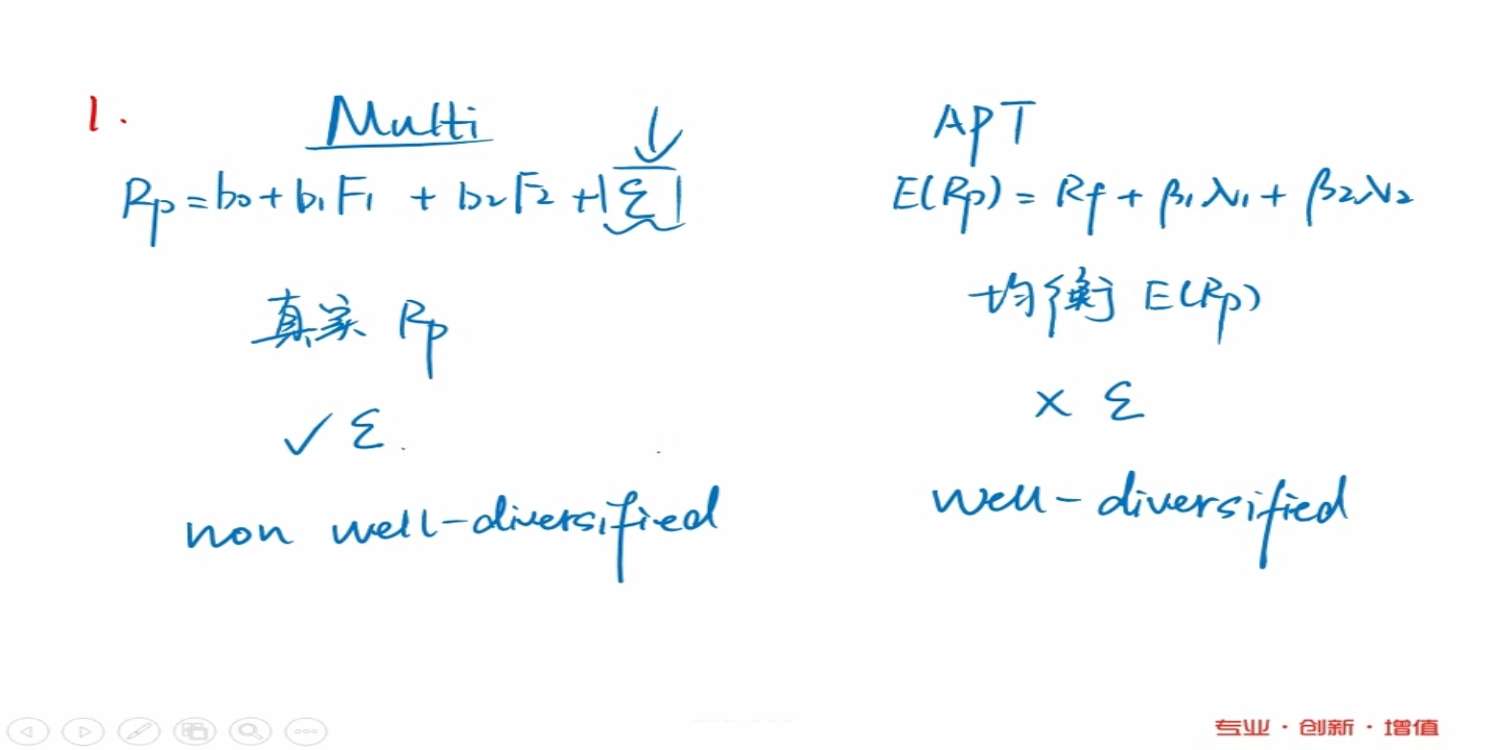 1.
Multi
Rp = b0 + b1 F1 + b2 F2 + ε
真实 Rp
✓ ε
non well-diversified
APT
E(Rp) = Rf + β1 λ1 + β2 λ2
均衡 E(Rp)
× ε
well-diversified
专业·创新·增值